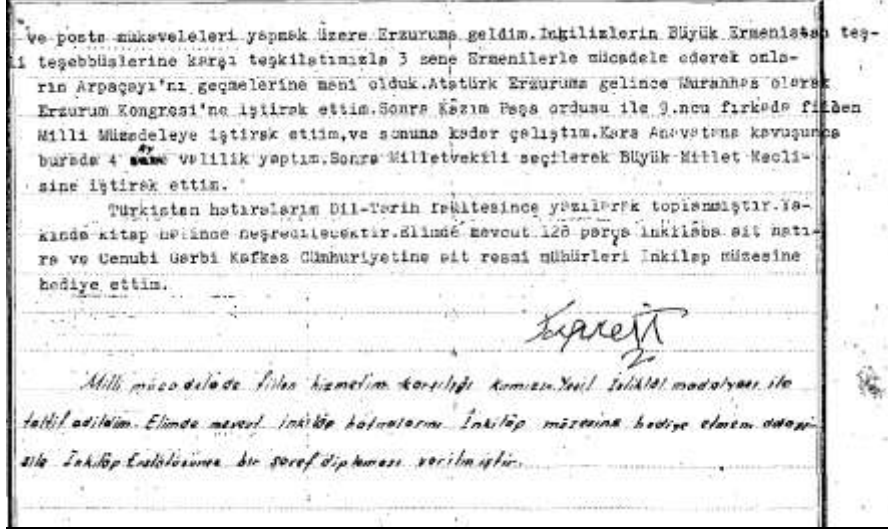 ve posta mukaveleleri yapmak üzere Erzuruma geldim.İngilizlerin Büyük Ermenistan teş-
i teşebbüslerine karşı teşkilatımızla 3 sene Ermenilerle mücadele ederek onla-
rın Arpaçayı'nı geçmelerine mani olduk.Atatürk Erzuruma gelince Murahhas olarak
Erzurum Kongresi'ne iştirak ettim.Sonra Kâzım Paşa ordusu ile 9.ncu fırkada fiilen
Milli Mücadeleye iştirak ettim,ve sonuna kadar çalıştım.Kars Anavatana kavuşunca
burada 4 ay valilik yaptım.Sonra Milletvekili seçilerek Büyük Millet Mecli-
sine iştirak ettim.
Türkistan hatıralarım Dil-Tarih fakültesince yazılarak toplanmıştır.Ya-
kında kitap halinde neşredilecektir.Elimde mevcut 128 parça inkilâba ait hatı-
ra ve Cenubi Garbi Kafkas Cümhuriyetine ait resmi mühürleri İnkilap müzesine
hediye ettim.
Milli mücadelede fiilen hizmetim karşılığı kırmızı Yeşil İstiklâl madalyası ile
taltif edildim. Elimde mevcut inkilâp hatıralarını İnkilâp müzesine hediye etmem dolayı-
sile İnkilâp Enstitüsünce bir şeref diploması verilmiştir.